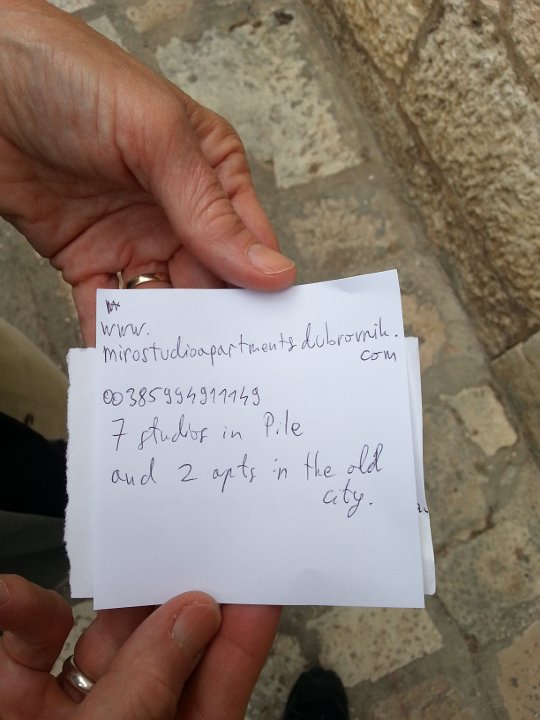 www.
mirostudioapartmentsdubrovnik.
com
00385994911149
7 studios in Pile
and 2 apts in the old
city.